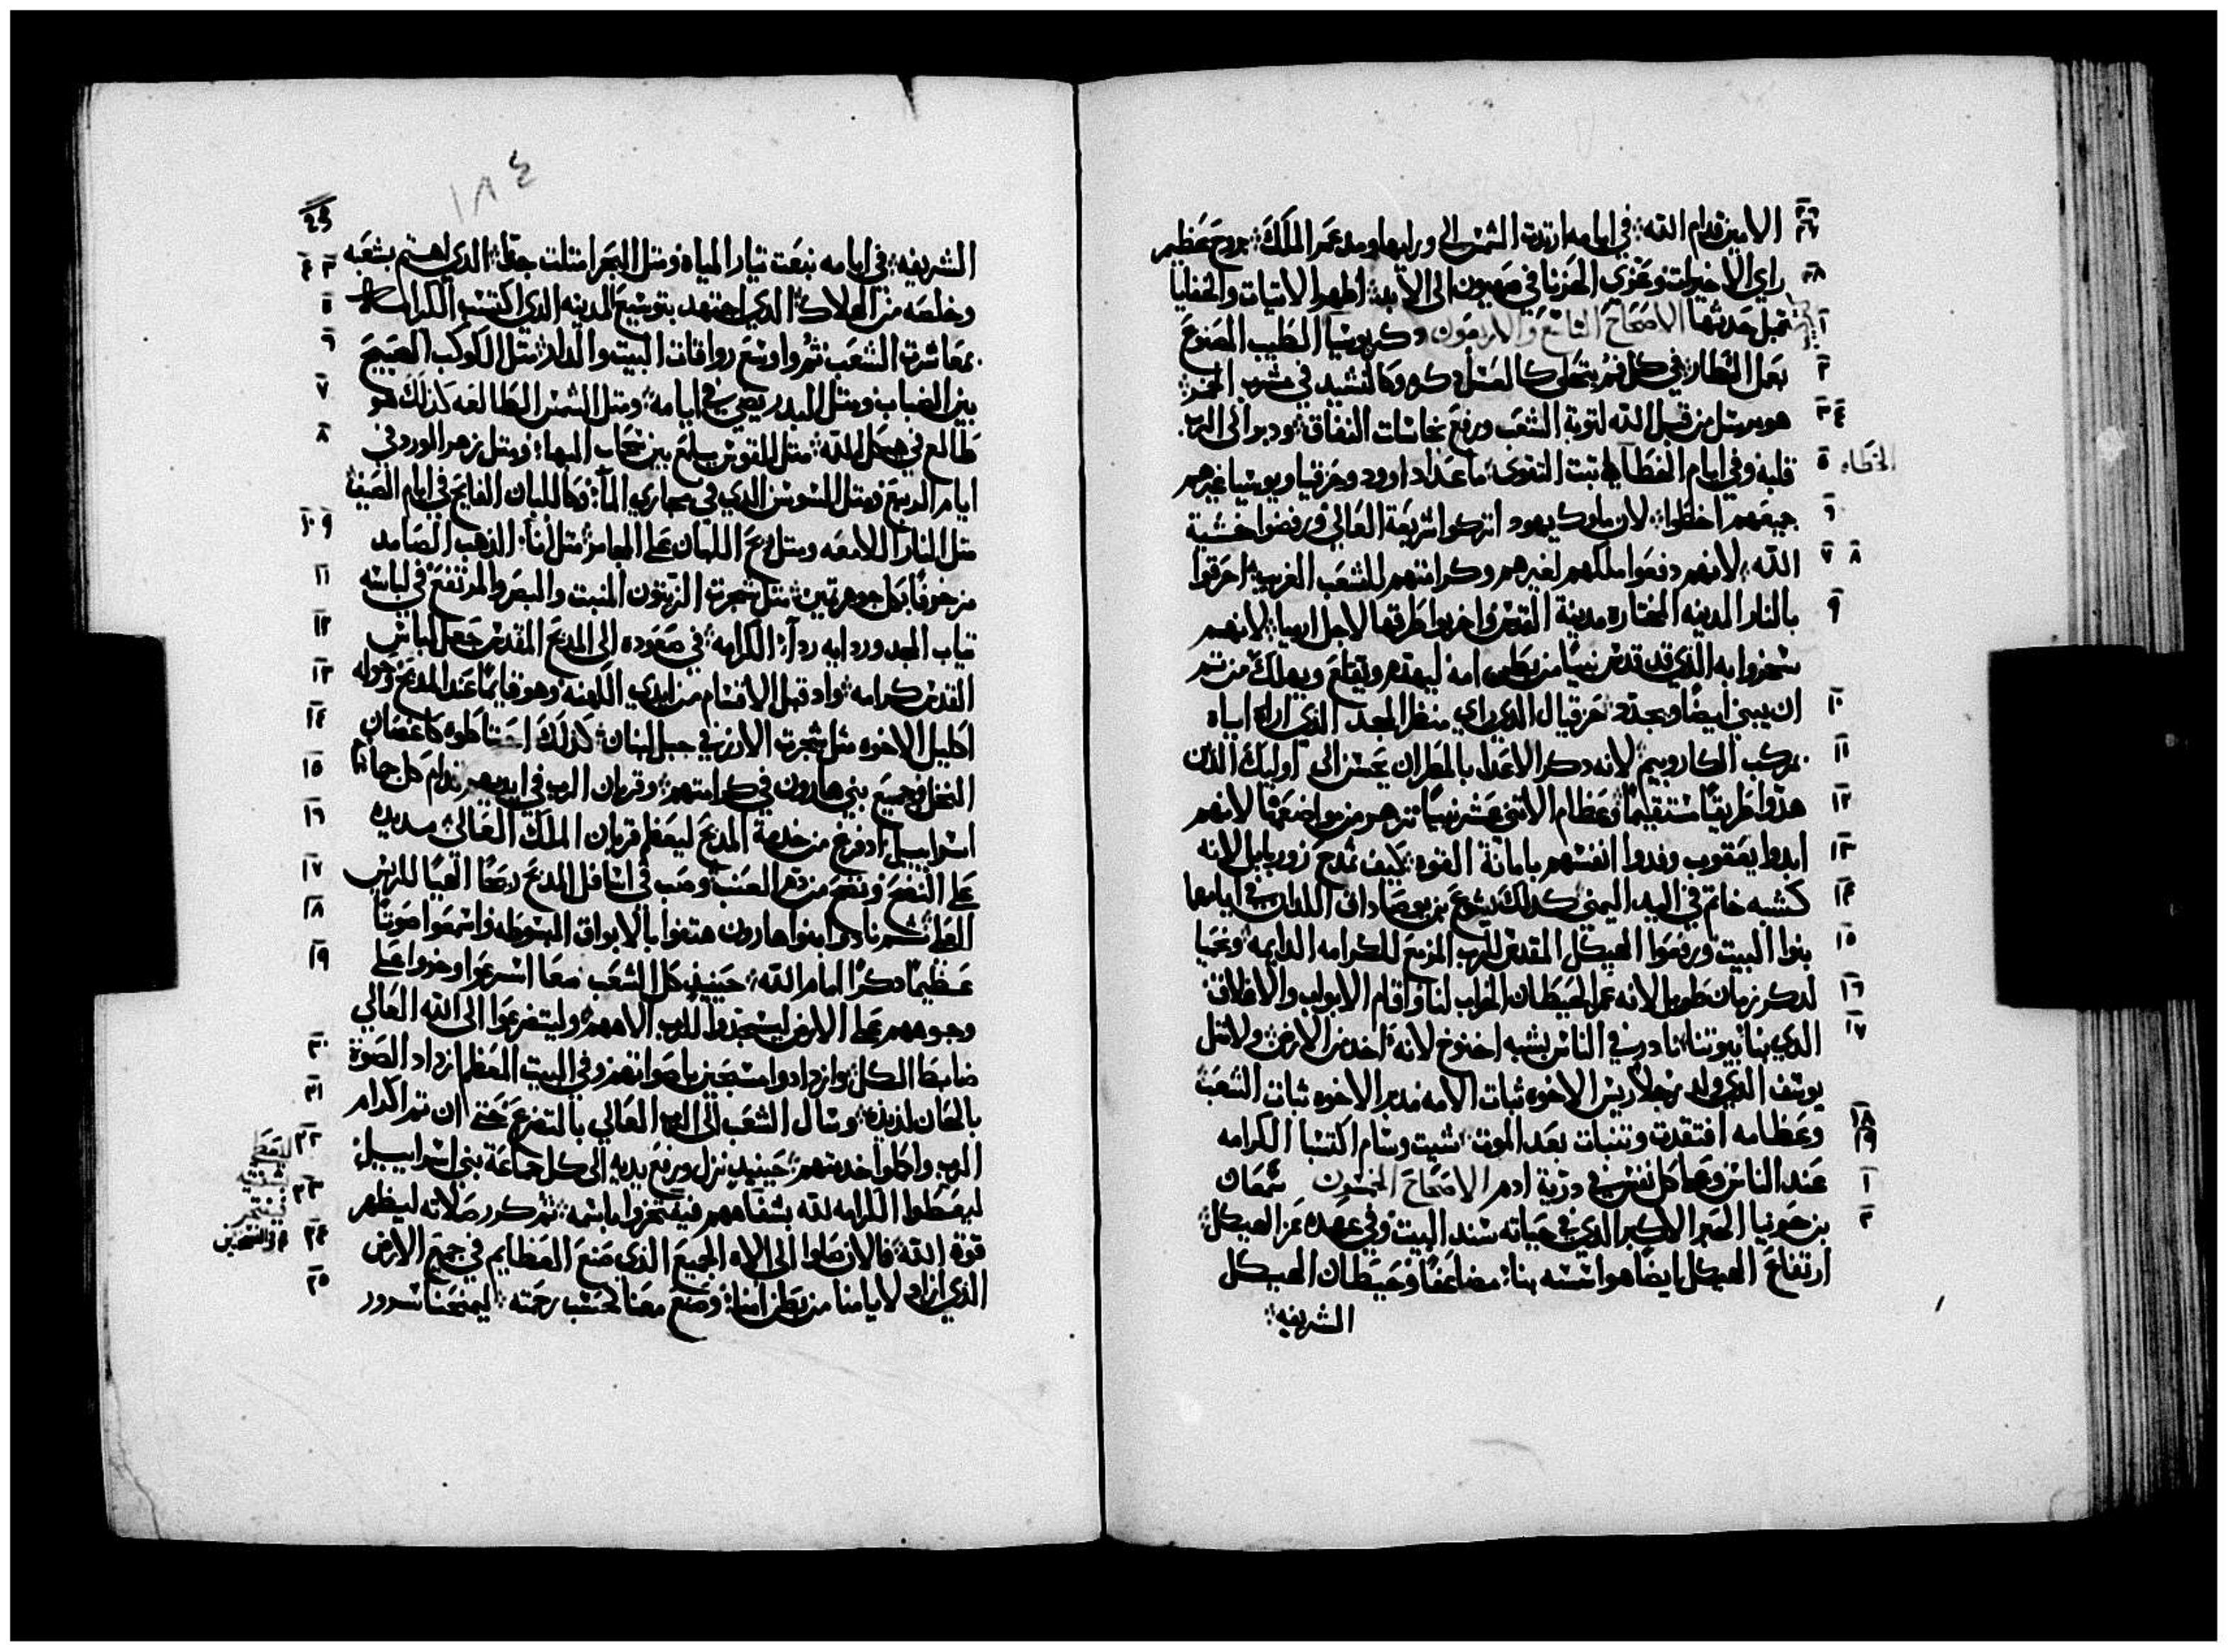 ٢٦ ٢٧ الامين قدام الله في ايامه ارتدت الشمس الى ورايها ومد عمر الملك بروح عظيم
٢٨ راي الاخيرات وعزى الحزنا في صهيون الى الابد اظهر الاتيات والخفايا
١ قبل حدثها الاصحاح التاسع والاربعون دكر يوسيا الطيب المصنوع
٢ بعمل العطار في كل فم يتحلى كالعسل دكره وكالنشيد في مشرب الخمر
٣ ٤ هو مرسل من قبل الله لتوبة الشعب ورفع نجاسات النفاق ودبر الى الرب
الخطاه ٥ قلبه وفي ايام الخطا ثبت التقوى ما عدا داوود وحزقيا ويوسيا غيرهم
٦ جميعهم اخطوا لان ملوك يهود اتركوا شريعة العالي ورفضوا خشية
٧ ٨ الله لانهم دفعوا ملكهم لغيرهم وكرامتهم للشعب الغريب احرقوا
٩ بالنار المدينه المختاره مدينة القدس واخربوا طرقها لاجل ارميا لانهم
سخروا به الذي قد قدس نبيا من بطن امه ليهدم ويقلع ويهلك من ثم
١٠ ان يبني ايضا ويجدد حزقيال الذي راي منظر المجد الذي اراه اياه
١١ بمركب الكاروبيم لانه دكر الاعدا بالمطر ان يحسن الى اوليك الذين
١٢ هدوا طريقا مستقيما وعظام الاثني عشر نبيا تزهر من مواضعها لانهم
١٣ ايدوا يعقوب وفدوا انفسهم بامانة القوه كيف نمدح زوربابل لانه
١٤ كشبه خاتم في اليد اليمنى كدلك يشوع بن يوصاداق اللدان في ايامهما
١٥ بنوا البيت ورفعوا الهيكل المقدس للرب المزمع للكرامه الدايمه ونحميا
١٦ لدكر زمان طويل لانه عمر الحيطان الخراب لنا واقام الابواب والاغلاق
١٧ الدي بنا بيوتنا نادر في الناس يشبه اخنوخ لانه اخد من الارض ولا مثل
يوسف الدي ولد رجلا ريس الاخوه ثبات الامه مدبر الاخوه ثبات الشعب
١٨ ١٩ وعظامه افتقدت وتنبات بعد الموت شيت وسام اكتسبا الكرامه
١ عند الناس وهما كل نفس في درية ادم الاصحاح الخمسون سمعان
٢ بن حونيا الحبر الاكبر الدي في حياته سند البيت وفي عهده عز الهيكل
ارتفاع الهيكل ايضا هو اسسه بنا مضاعفا وحيطان الهيكل
الشريفه
١٨٤
٣ ٤ الشريفه في ايامه نبعت تيار المياه ومثل البحر امتلت جدا الدي اهتم بشعبه
٥ وخلصه من الهلاك الدي اجتهد بتوسيع المدينه الدي اكتسب الكرامه
٦ بمعاشرة الشعب ثم واوسع رواقات البيت والدار مثل الكوكب الصبيح
٧ بين الضباب ومثل البدر يضي في ايامه ومثل الشمس الطالعه كدلك هو
٨ طالع في هيكل الله مثل القوس يبلغ بين سحاب البها ومثل زهر الورد في
ايام الربيع ومثل السوسن الدي في مجاري الما وكاللبان الفايح في ايام الصيف
٩ ١٠ مثل النار اللامعه ومثل اللبان على المجامر مثل انا الدهب الصامد
١١ مزخرفا بكل جوهر ثمين مثل شجرت الزيتون المنبت والسرو المرتفع في لباسه
١٢ ثياب المجد وردايه ردا الكرامه في صعوده الى المدبح المقدس جعل لباس
١٣ القدس كرامه واد قبل الاقسام من ايدي الكهنه وهو قايما عند المدبح وحوله
١٤ اكليل الاخوه مثل شجرت الارز في جبل لبنان كدلك احتاطوه كاغصان
١٥ النخل وجميع بني هارون في كرامتهم وقربان الرب في ايديهم قدام كل جماعة
١٦ اسراييل اد فرغ من خدمة المدبح ليعظم قربان الملك العالي مد يده
١٧ على النضح ونضح من دم العنب وصب في اسافل المدبح ريحا الهيا للريس
١٨ العظيم ثم نادوا بنوا هارون هتفوا بالابواق المبسوطه واسمعوا صوتا
١٩ عظيما دكرا امام الله حينيد كل الشعب معا اسرعوا وخروا على
وجوههم على الارض ليسجدوا للرب الاههم وليتضرعوا الى الله العالي
٢٠ ضابط الكل وازدادوا مسبحين باصواتهم وفي البيت المعظم ازداد الصوت
٢١ بالحان لديده وسال الشعب الى الرب العالي بالتضرع حتى ان تم اكرام
٢٢ الرب واكملوا خدمتهم حينيد نزل ورفع يديه الى كل جماعة بني اسراييل
٢٣ ليعطوا الكرامه لله بشفاههم فيفتخروا باسمه ثم كرر صلاته ليظهر
٢٤ قوة الله فالان صلوا الى الاه الجميع الذي صنع العظايم في جميع الارض
٢٥ الذي ازاد لايامنا من بطن امنا وصنع معنا بحسب رحمته ليمنحنا سرور